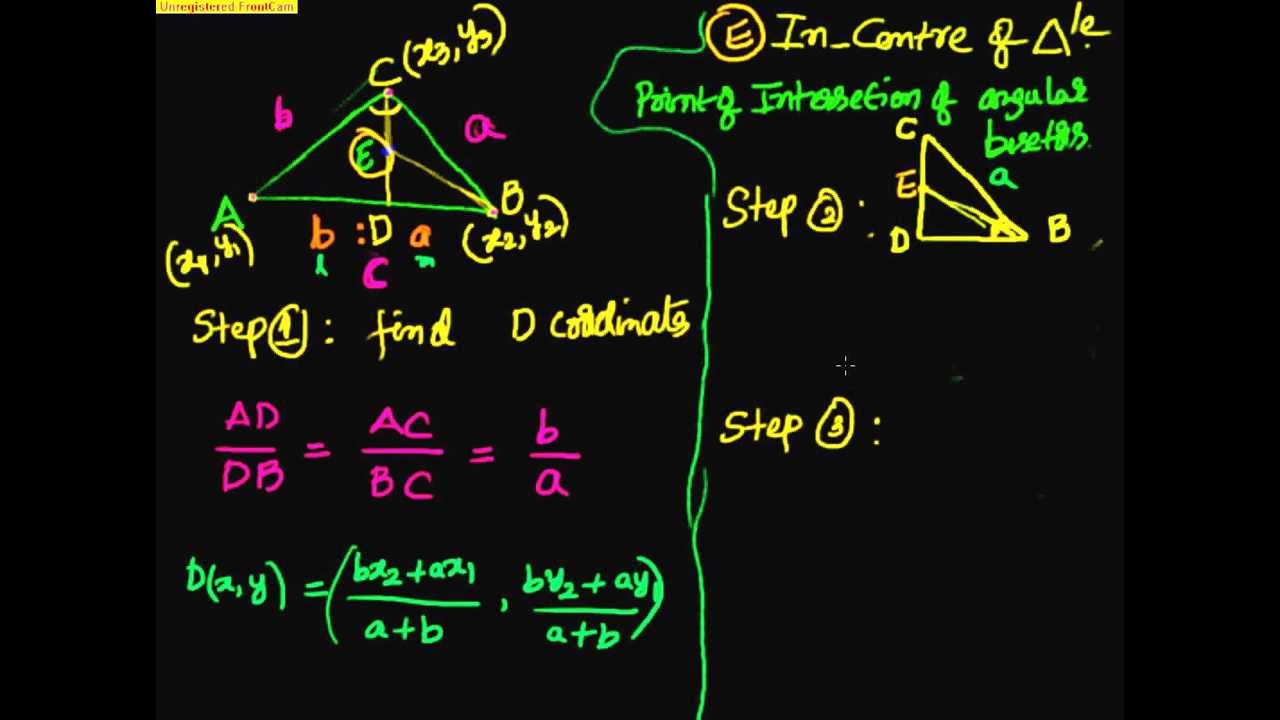 Unregistered FrontCam
C (x3, y3)
b
a
E
A
B
b : D a
(x1, y1)
(x2, y2)
C
Step ① : find D coordinates
AD/DB = AC/BC = b/a
D(x, y) = (bx2 + ax1 / a + b , by2 + ay1 / a + b)
E In-Centre of Δ'le.
Point of Intersection of angular
C
a
E
Step ② :
D
B
Step ③ :